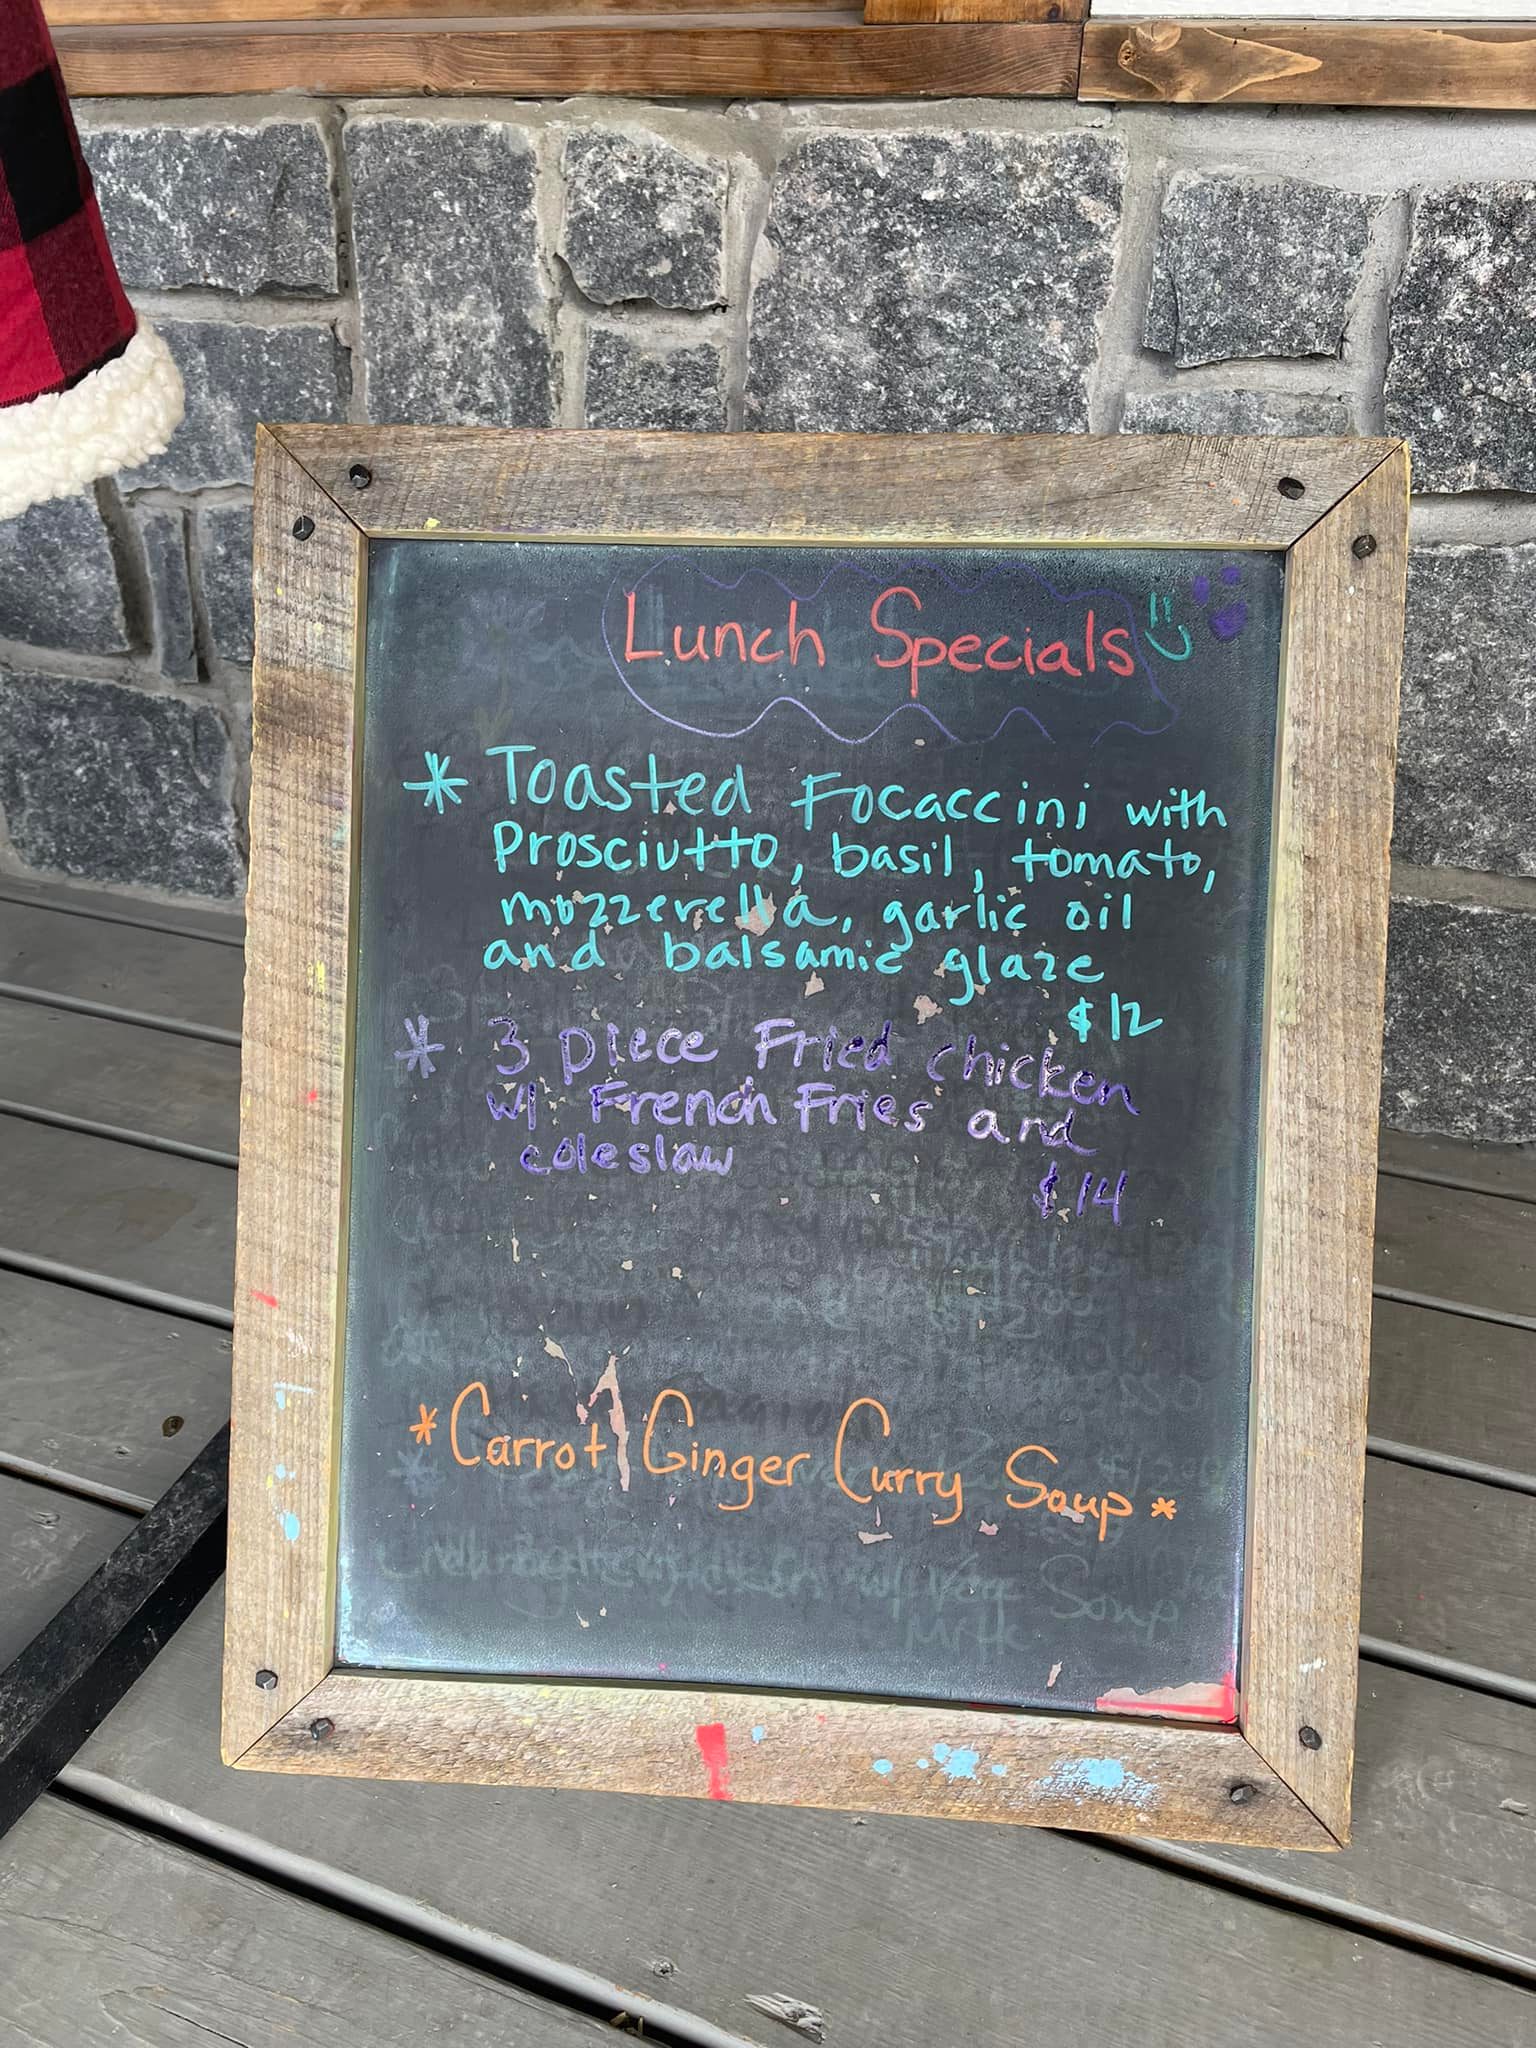 Lunch Specials
* Toasted Focaccini with
Prosciutto, basil, tomato,
mozzerella, garlic oil
and balsamic glaze
$12
* 3 piece Fried chicken
w/ French Fries and
coleslaw
$14
* Carrot Ginger Curry Soup *
Soup
Milk